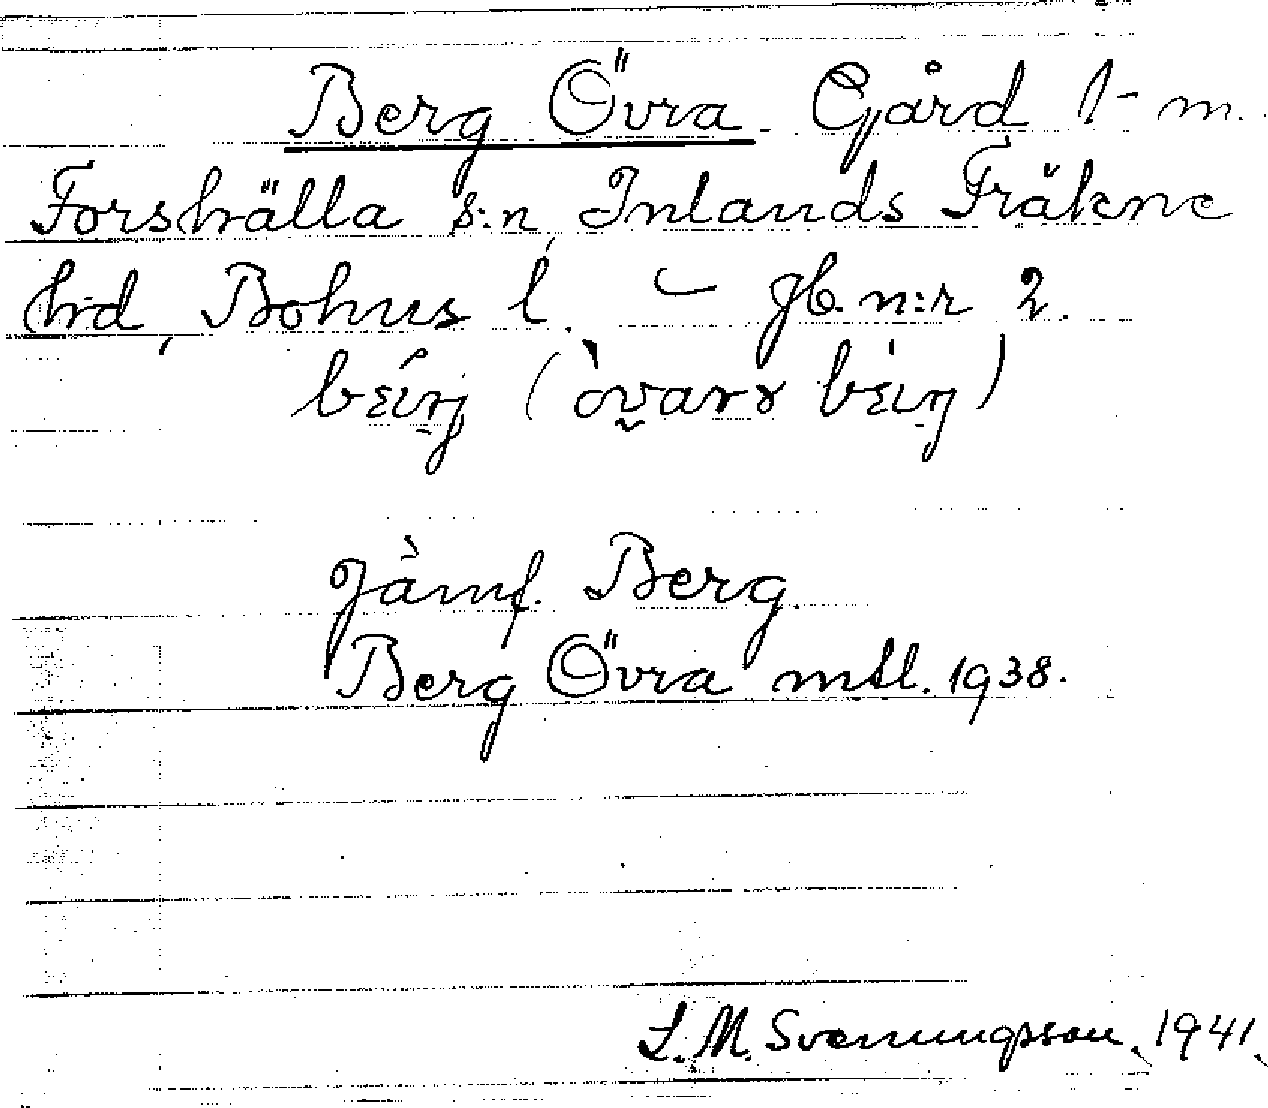 Berg Övra. Gård 1-m.
Forshälla s:n, Inlands Fräkne
hd, Bohus l. gb. n:r 2.
Jämf. Berg.
Berg Övra mtl. 1938.
L. M. Svenungsson, 1941.